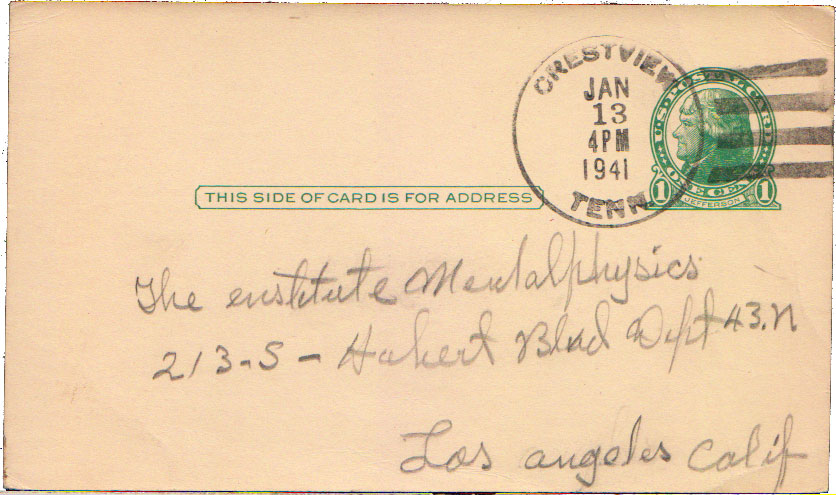 CRESTVIEW
JAN
13
4PM
1941
TENN.
U.S. POSTAL CARD
ONE CENT
1 JEFFERSON 1
THIS SIDE OF CARD IS FOR ADDRESS
The enstitute Mentalphysics
213-S - Hobert Blvd Dept 43.N
Los angeles Calif